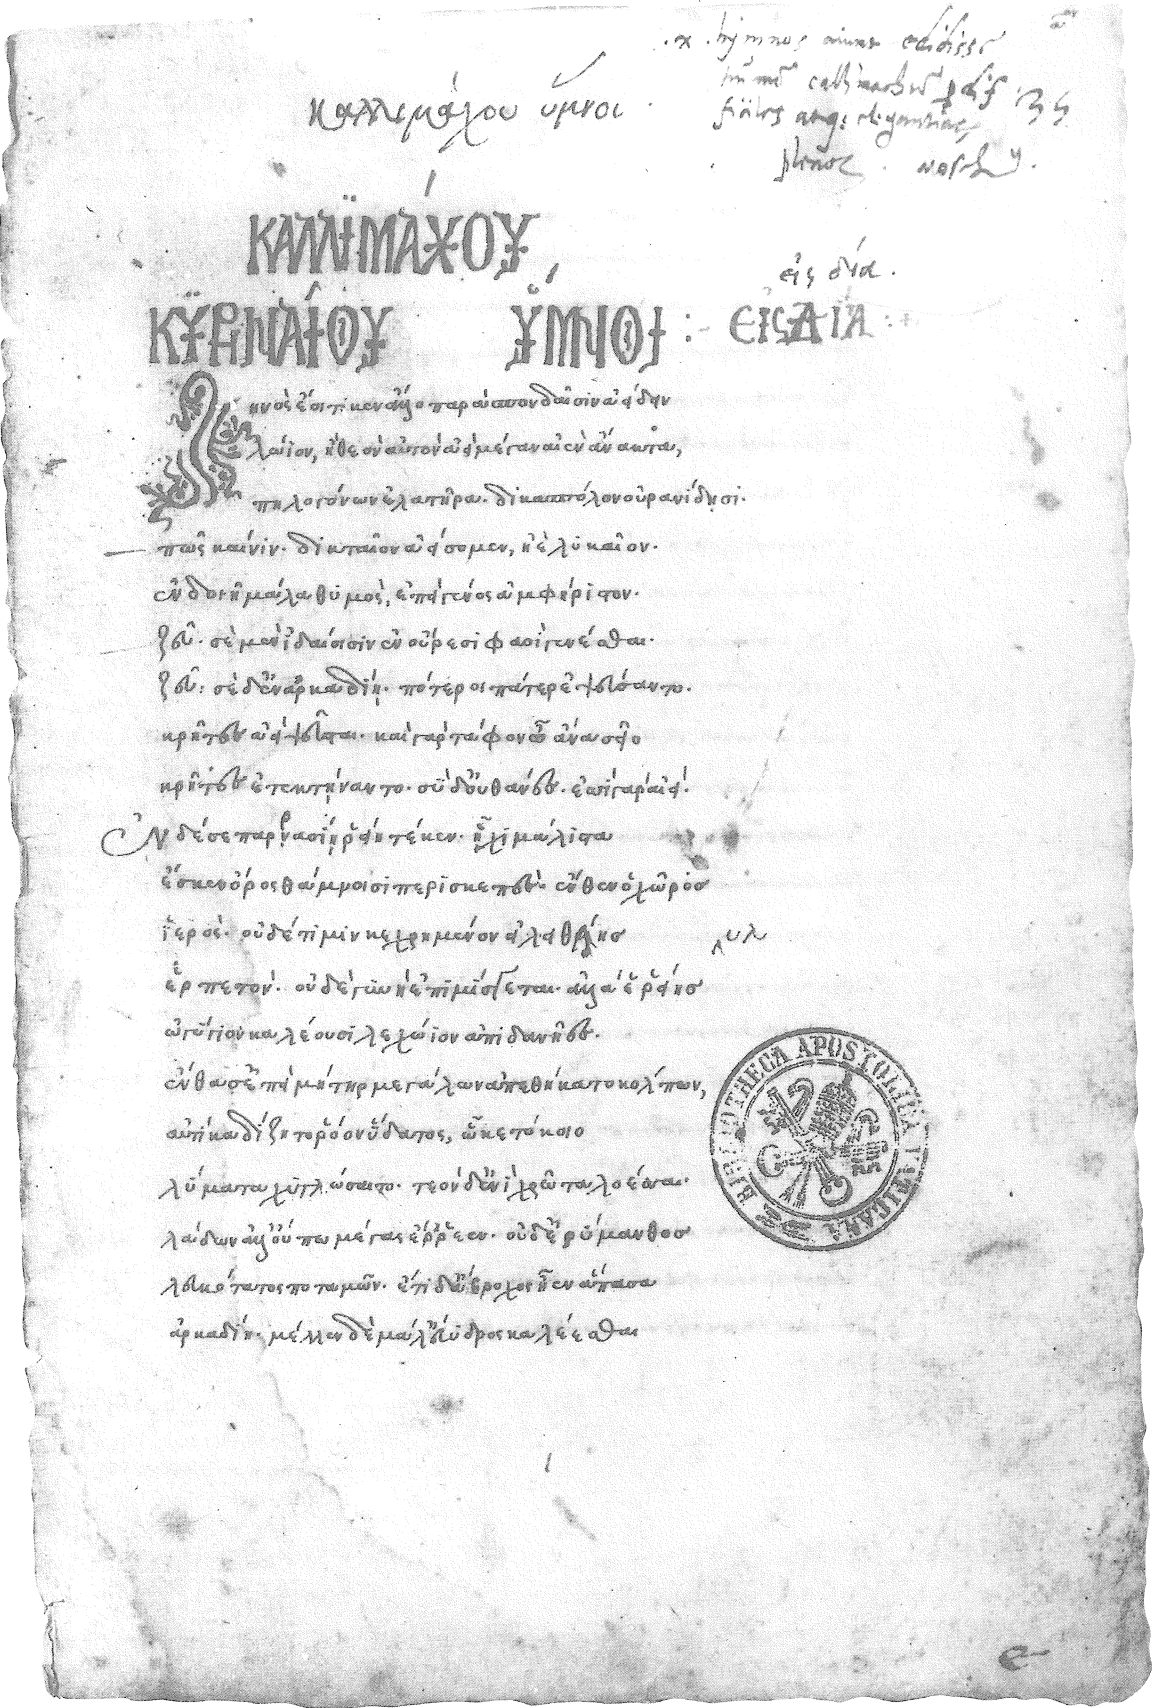 . x . hymnos
callimachum
Καλλιμάχου ὕμνοι .
ΚΑΛΛΪΜΆΧΟΥ
εἰς δία .
ΚΫΡΗΝΑΊΟΥ ὝΜΝΟΙ :- ΕἸΣ ΔΊΑ :+
Ζηνὸς ἔοι τί κεν ἄλλο παρὰ σπονδαῖσιν ἀείδειν
λώϊον, ἢ θεὸν αὐτὸν ἀεὶ μέγαν αἰὲν ἄνακτα,
πηλογόνων ἐλατῆρα. δικασπόλον οὐρανίδησι.
πῶς καί νιν. δικταῖον ἀείσομεν, ἠὲ λυκαῖον.
ἐν δοιῇ μάλα θυμὸς, ἐπεὶ γένος ἀμφήριστον.
ζεῦ. σὲ μὲν ἰδαίοισιν ἐν οὔρεσι φασὶ γενέσθαι.
ζεῦ: σὲ δ' ἐν ἀρκαδίῃ. πότεροι πάτερ ἐψεύσαντο.
κρῆτες ἀεὶ ψεῦσται. καὶ γὰρ τάφον ὦ ἄνα σεῖο
κρῆτες ἐτεκτήναντο. σὺ δ' οὐ θάνες. ἐσσὶ γὰρ αἰεί.
Ἐν δέ σε παρρασίῃ ῥείη τέκεν. ἧχι μάλιστα
ἔσκεν ὄρος θάμνοισι περισκεπές. ἔνθεν ὁ χῶρος
ἱερός. οὐδέ τί μιν κεχρημένον εἰλειθυίης
ἑρπετὸν. οὐδὲ γυνὴ ἐπιμίσγεται. ἀλλά ἑ ῥείης
ὠγύγιον καλέουσι λεχώϊον ἀπιδανῆες.
ἔνθα σ' ἐπεὶ μήτηρ μεγάλων ἀπεθήκατο κόλπων,
αὐτίκα δίζητο ῥόον ὕδατος, ᾧ κε τόκοιο
λύματα χυτλώσαιτο. τεὸν δ' ἐνὶ χρῶτα λοέσσαι.
λάδων ἀλλ' οὔπω μέγας ἔρρεεν. οὐδ' ἐρύμανθος
λευκότατος ποταμῶν. ἔτι δ' ἄβροχος ἦεν ἅπασα
ἀρκαδίη. μέλλεν δὲ μάλ' εὔυδρος καλέεσθαι
BIBLIOTHECA APOSTOLICA VATICANA